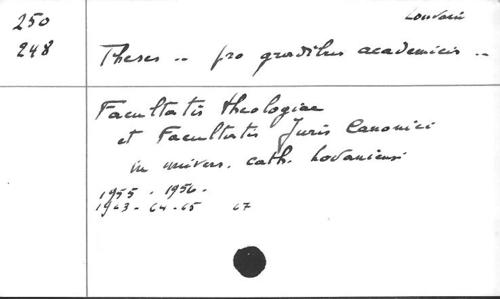 250
Louvain
248
Theses .. pro gradibus academicis ..
Facultatis theologiae
et Facultatis Juris Canonici
in univers. cath. Lovaniensi
1955 - 1956 -
1963 - 64 - 65 67